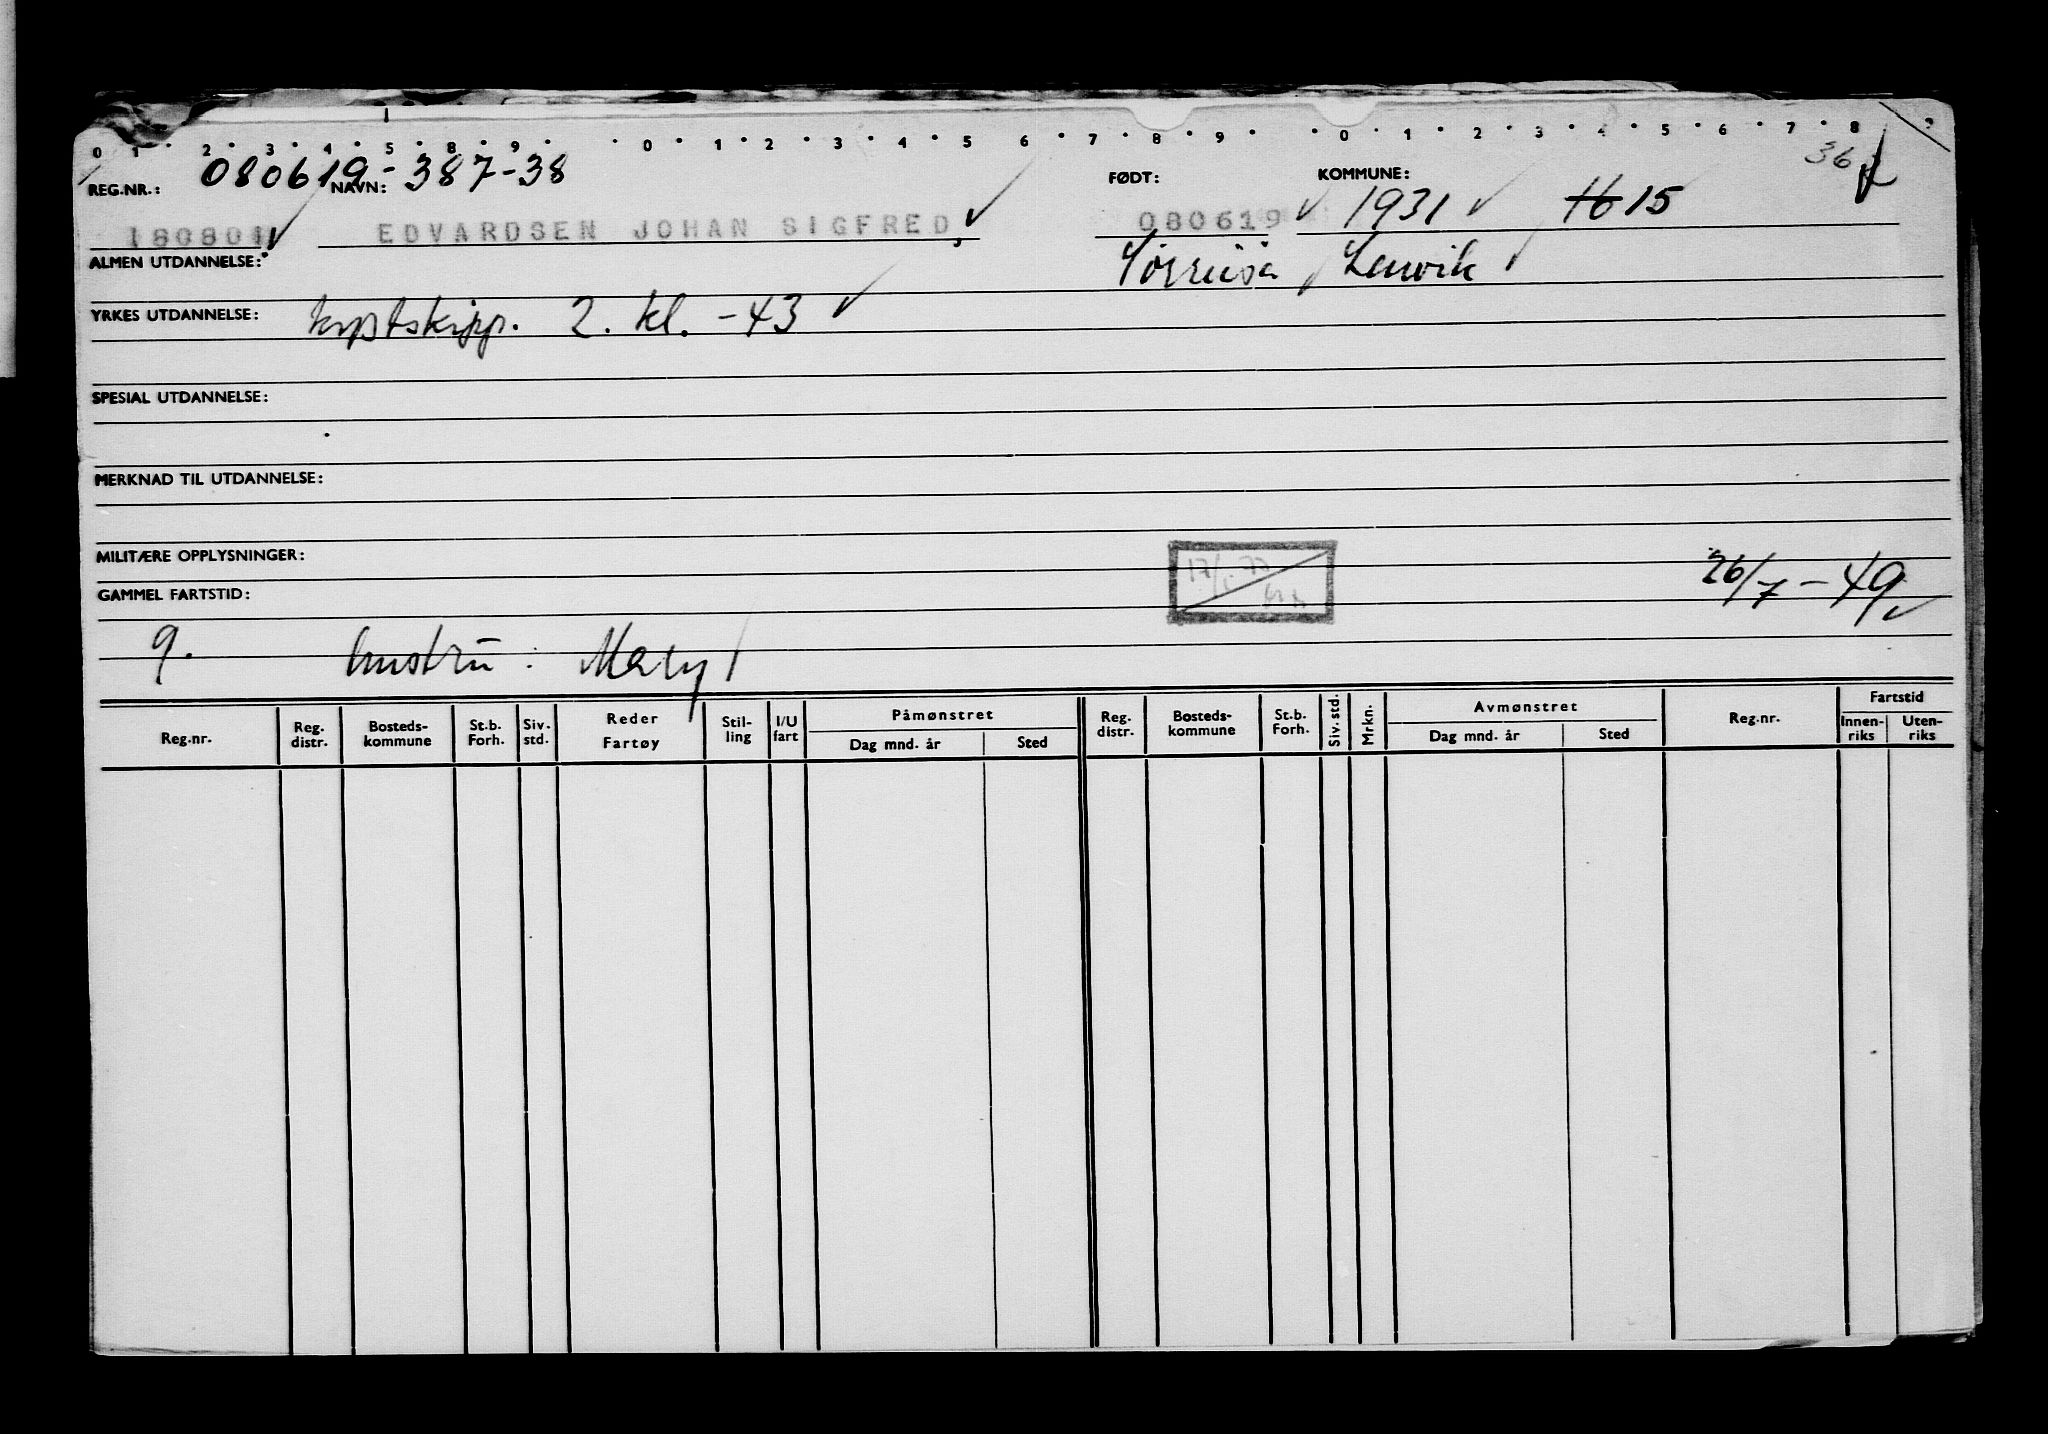 0 1 2 3 4 5 8 9 0 1 2 3 4 5 6 7 8 9 0 1 2 3 4 5 6 7 8 9
36
REG.NR.: 080619-387-38 NAVN: FØDT: KOMMUNE:
180801 EDVARDSEN JOHAN SIGFRED, 080619 1931 16 15
ALMEN UTDANNELSE: Sørreisa Lenvik
YRKES UTDANNELSE: kystskipp. 2. kl. -43
SPESIAL UTDANNELSE:
MERKNAD TIL UTDANNELSE:
MILITÆRE OPPLYSNINGER: 26/7-49
GAMMEL FARTSTID:
g. hustru: Mary
Reg.nr. Reg. distr. Bosteds-kommune St.b. Forh. Siv. std. Reder Fartøy Stil-ling I/U fart Påmønstret Dag mnd. år Sted Reg. distr. Bosteds-kommune St.b. Forh. Siv. std. Mrkn. Avmønstret Dag mnd. år Sted Reg.nr. Fartstid Innen-riks Uten-riks